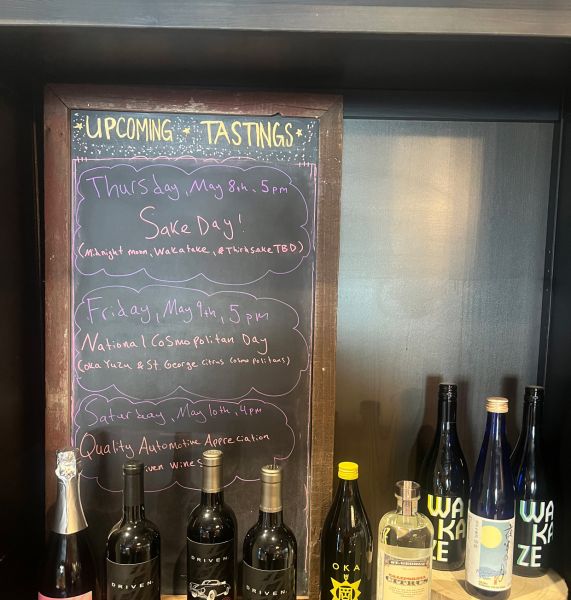 UPCOMING ★ TASTINGS
Thursday, May 8th, 5pm
Sake Day!
(Midnight moon, Wakatake, & Third sake TBD)
Friday, May 9th, 5pm
National Cosmopolitan Day
(OKA Yuzu & St George citrus cosmopolitans)
Saturday, May 10th, 4pm
Quality Automotive Appreciation
iven wines
DRIVEN.
DRIVEN.
DRIVEN.
OKA
WA
KA
ZE
WA
KA
ZE